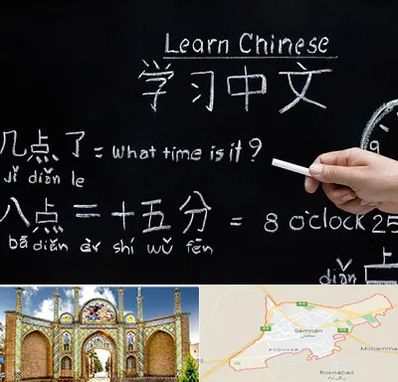 Learn Chinese
学习中文
几点了 = What time is it?
jǐ diǎn le
八点二十五分 = 8 o'clock 25
bā diǎn èr shí wǔ fēn
9
diǎn
Semnan
KODIVAR
Mohamma
Roknabad